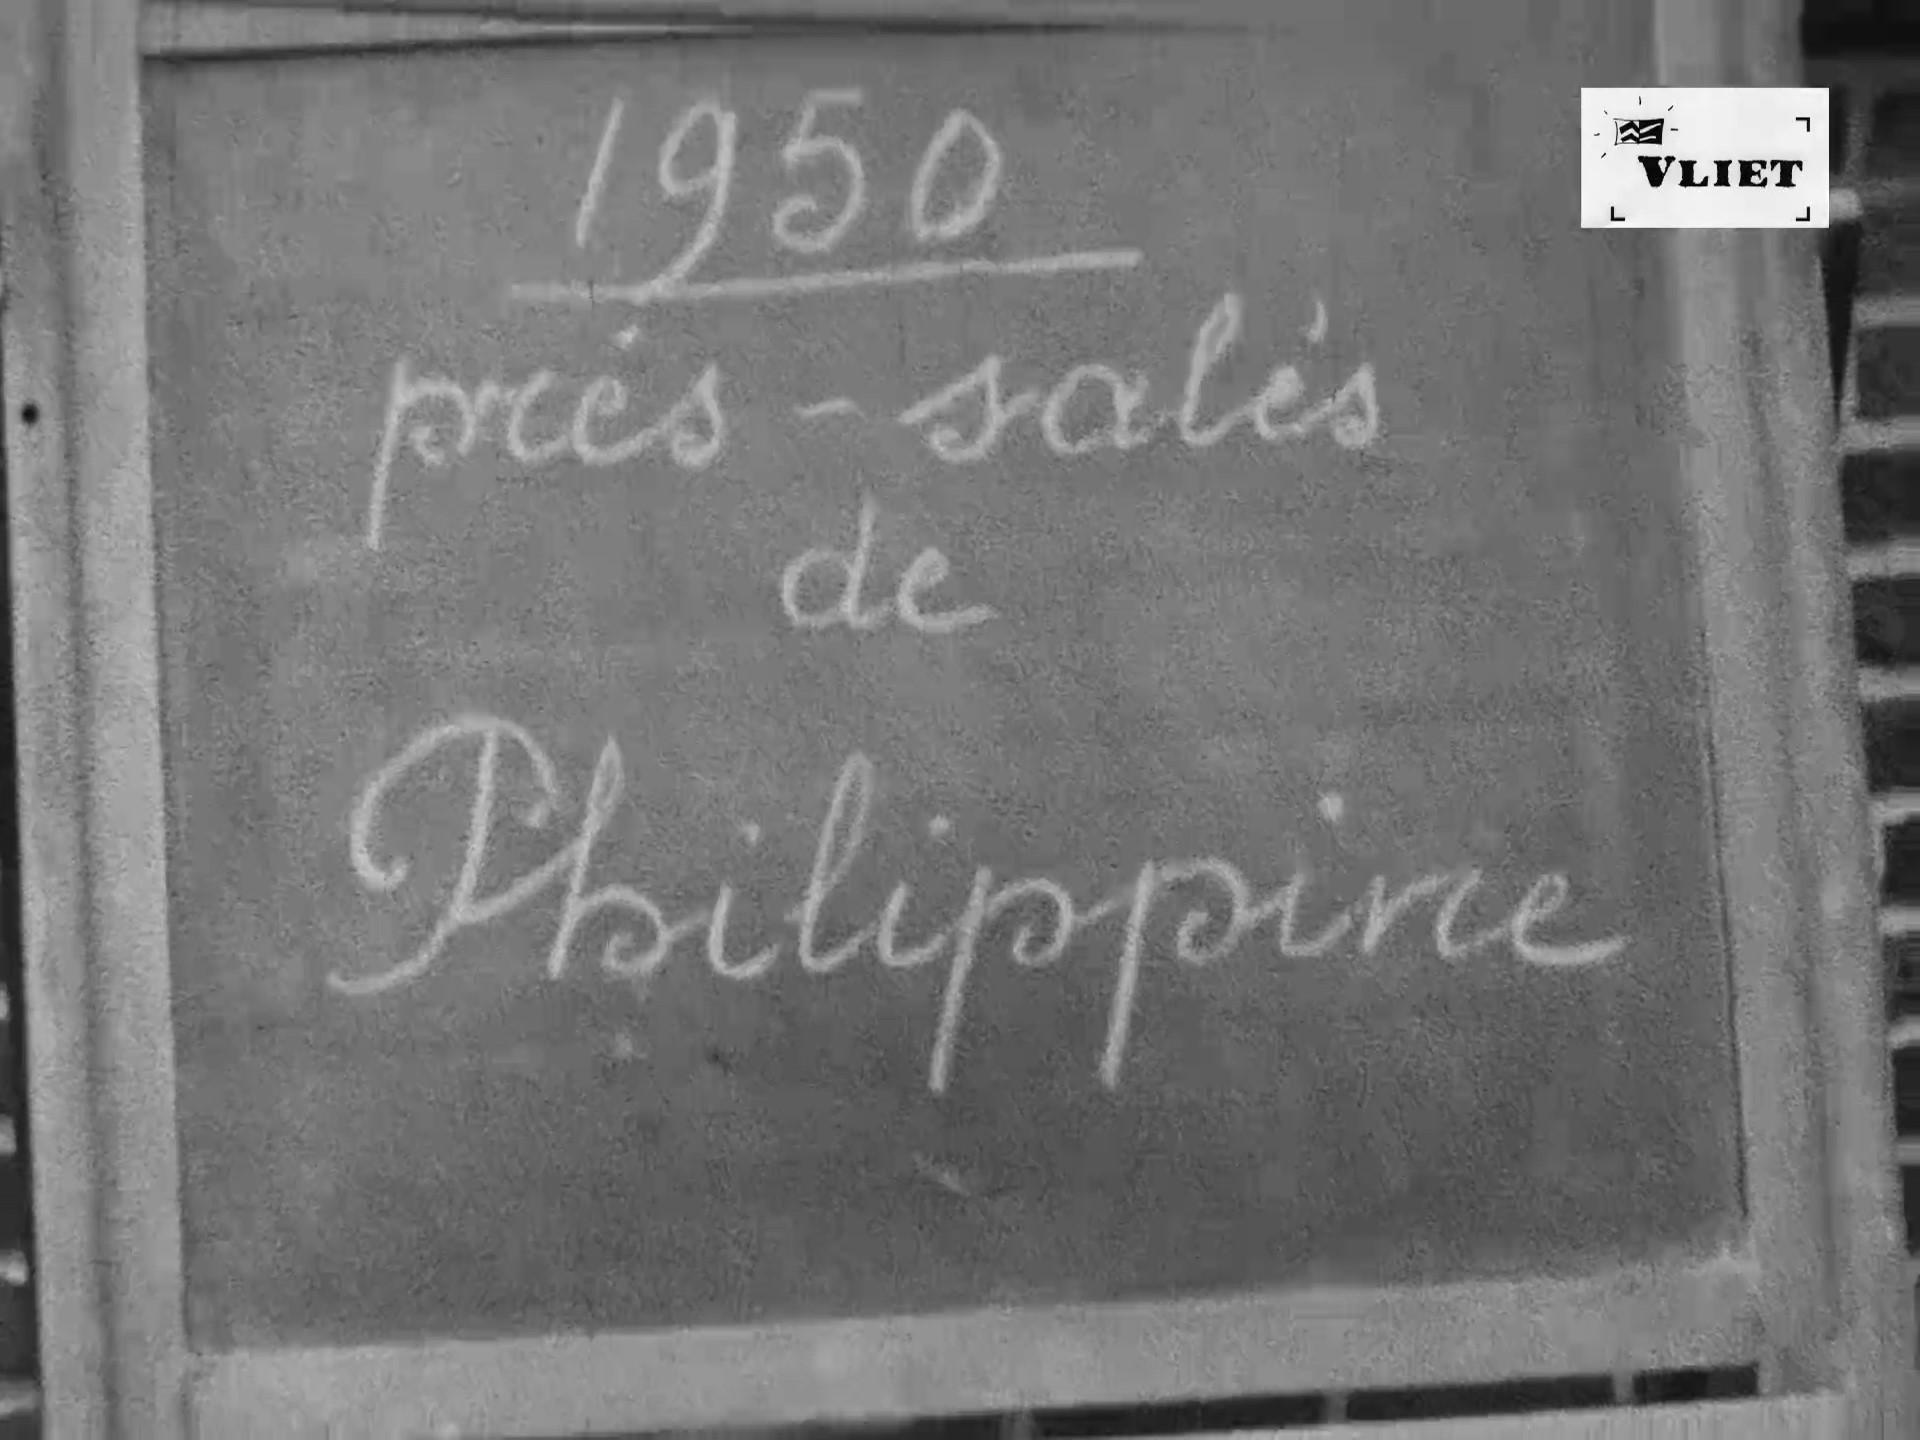 1950
prés-salés
de
Philippine
VLIET